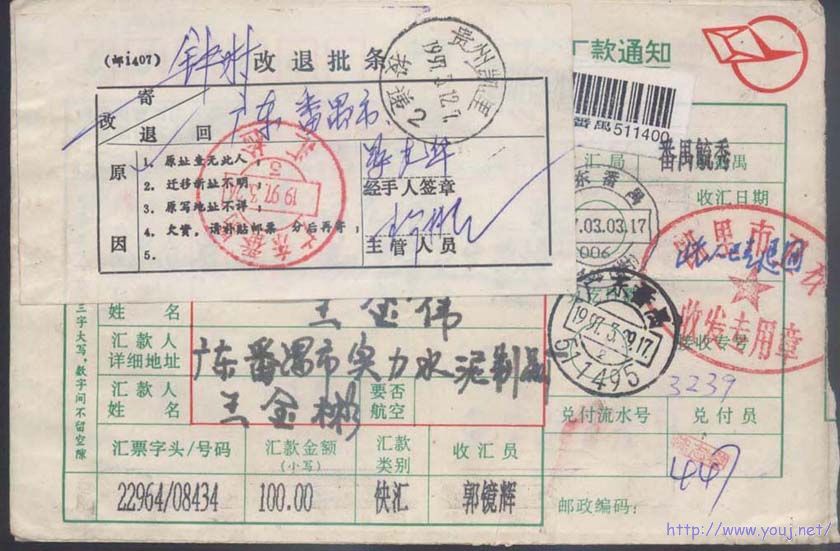 (邮1407)
改退批条
汇款通知
贵州凯里
1997.3.12.7
2
寄
改
退 回
广东番禺市
原
因
1. 原址查无此人；
2. 迁移新址不明；
3. 原写地址不详；
4. 欠资，请补贴邮票 分后再寄；
5.
经手人签章
主管人员
番禺511400
汇局
番禺毓秀
收汇日期
03.03.17
006
广东番禺
1997.3.
17
511495
凯里市
收发专用章
接收专号
3239
三字大写，数字间不留空隙
姓 名
王金伟
汇款人
详细地址
广东番禺市实力水泥制品
汇款人
姓 名
王金彬
要否
航空
兑付流水号
兑付员
447
汇票字头/号码
汇款金额
(小写)
汇款
类别
收汇员
22964/08434
100.00
快汇
郭镜辉
邮政编码：
http://www.youj.net/